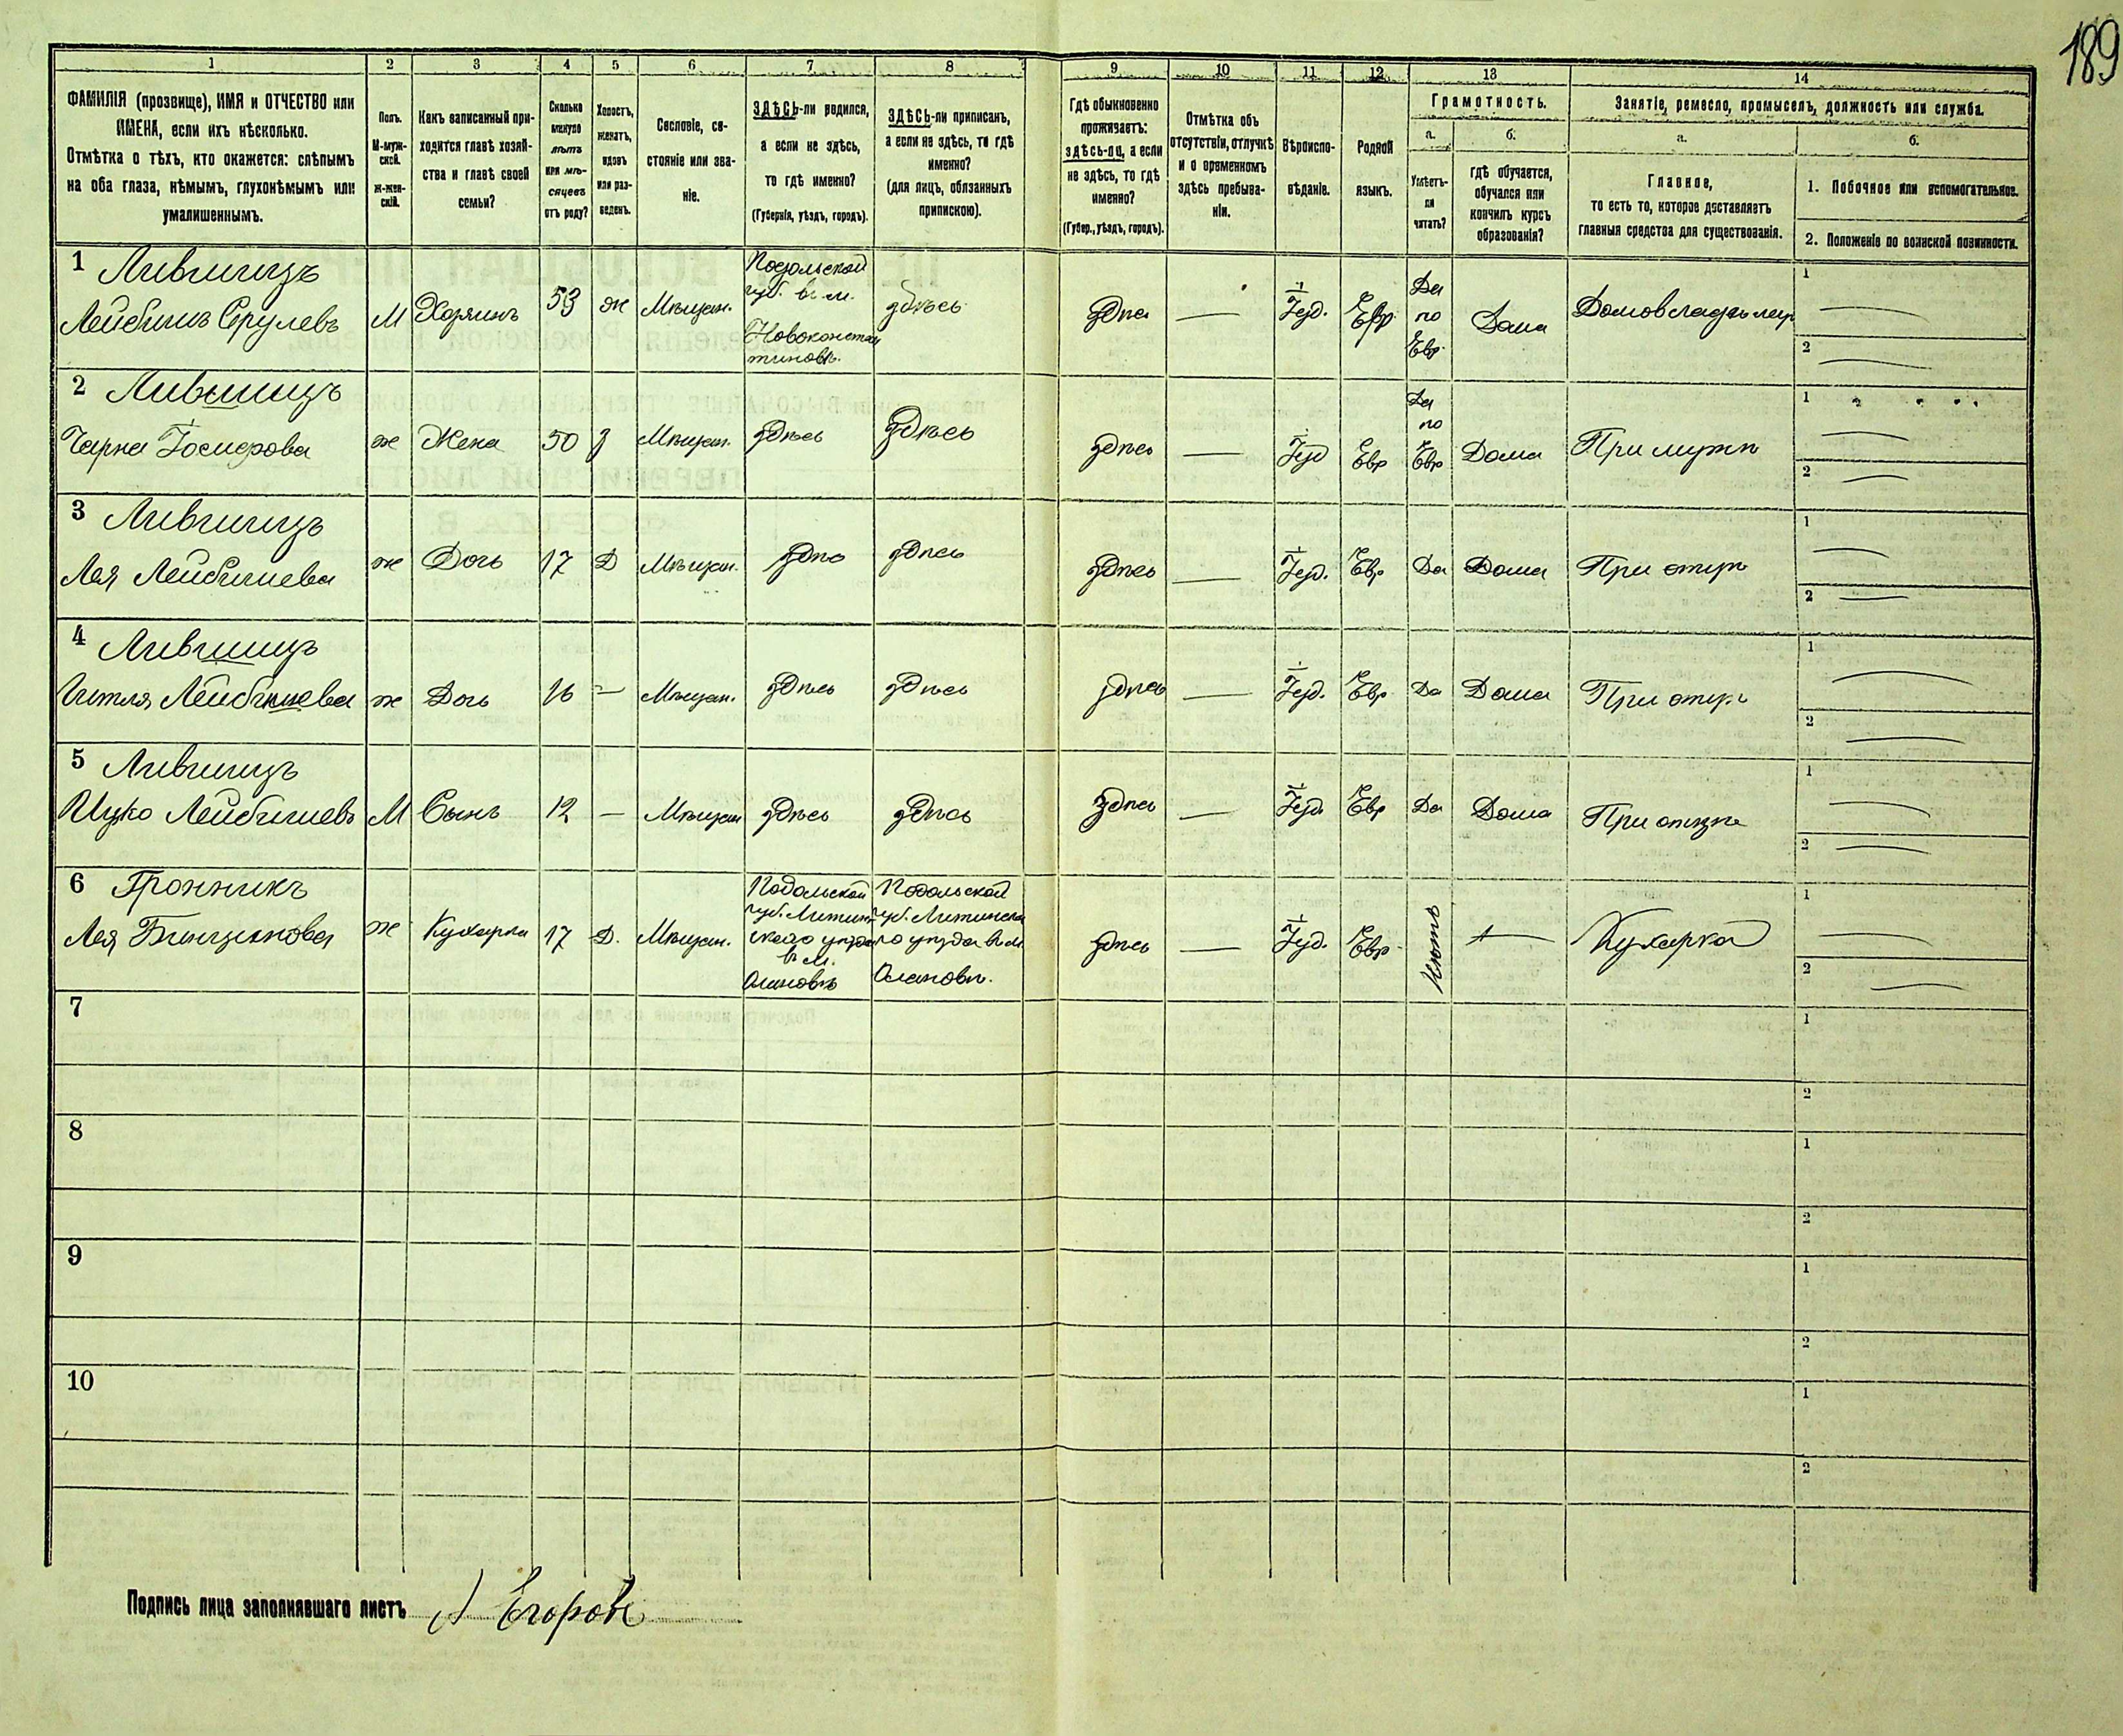 189
1 2 3 4 5 6 7 8 9 10 11 12 13 14
ФАМИЛІЯ (прозвище), ИМЯ и ОТЧЕСТВО или
ИМЕНА, если ихъ нѣсколько.
Отмѣтка о тѣхъ, кто окажется: слѣпымъ
на оба глаза, нѣмымъ, глухонѣмымъ или
умалишеннымъ.
Полъ.
М-муж-
ской.
ж-жен-
скій.
Какъ записанный при-
ходится главѣ хозяй-
ства и главѣ своей
семьи?
Сколько
минуло
лѣтъ
или мѣ-
сяцевъ
отъ роду?
Холостъ,
женатъ,
вдовъ
или раз-
веденъ.
Сословіе, со-
стояніе или зва-
ніе.
ЗДѢСЬ-ли родился,
а если не здѣсь,
то гдѣ именно?
(Губернія, уѣздъ, городъ).
ЗДѢСЬ-ли приписан,
а если не здѣсь, то гдѣ
именно?
(для лицъ, обязанныхъ
припискою).
Гдѣ обыкновенно
проживаетъ:
здѣсь-ли, а если
не здѣсь, то гдѣ
именно?
(Губер., уѣздъ, городъ).
Отмѣтка объ
отсутствіи, отлучкѣ
и о временномъ
здѣсь пребыва-
ніи.
Вѣроиспо-
вѣданіе.
Родной
языкъ.
Грамотность.
а.
Умѣетъ-
ли
читать?
б.
гдѣ обучается,
обучался или
кончилъ курсъ
образованія?
Занятіе, ремесло, промыселъ, должность или служба.
а.
Главное,
то есть то, которое доставляетъ
главныя средства для существованія.
б.
1. Побочное или вспомогательное.
2. Положеніе по воинской повинности.
1 Лившицъ
Лейбишъ Срулевъ М Хозяинъ 53 ж Мѣщан.
Подольской
губ. в м.
Новоконстан
тиновѣ.
здѣсь здѣсь — Іуд. Евр.
Да
по
Евр.
Дома Домовладѣлец
1 —
2 —
2 Лившицъ
Чарна Іосифова ж Жена 50 з Мѣщан. здѣсь здѣсь здѣсь — Іуд Евр
Да
по
Евр
Дома При мужѣ
1 —
2 —
3 Лившицъ
Лея Лейбишева ж Дочь 17 Д Мѣщан. здѣсь здѣсь здѣсь — Іуд. Евр Да Дома При отцѣ
1 —
2 —
4 Лившицъ
Гитля Лейбишева ж Дочь 16 — Мѣщан. здѣсь здѣсь здѣсь — Іуд. Евр. Да Дома При отцѣ
1 —
2 —
5 Лившицъ
Ицко Лейбишевъ М Сынъ 12 — Мѣщан здѣсь здѣсь здѣсь — Іуд. Евр Да Дома При отцѣ
1 —
2 —
6 Гронникъ
Лея ж Кухарка 17 Д. Мѣщан.
Подольской
губ. Литин-
скаго уѣзда
в м.
Подольской
губ. Литинска
го уѣзда в м
здѣсь — Іуд. Евр. Нѣтъ — Кухарка
1 —
2 —
7 1
2
8 1
2
9 1
2
10 1
2
Подпись лица заполнявшаго листъ А Егоровъ